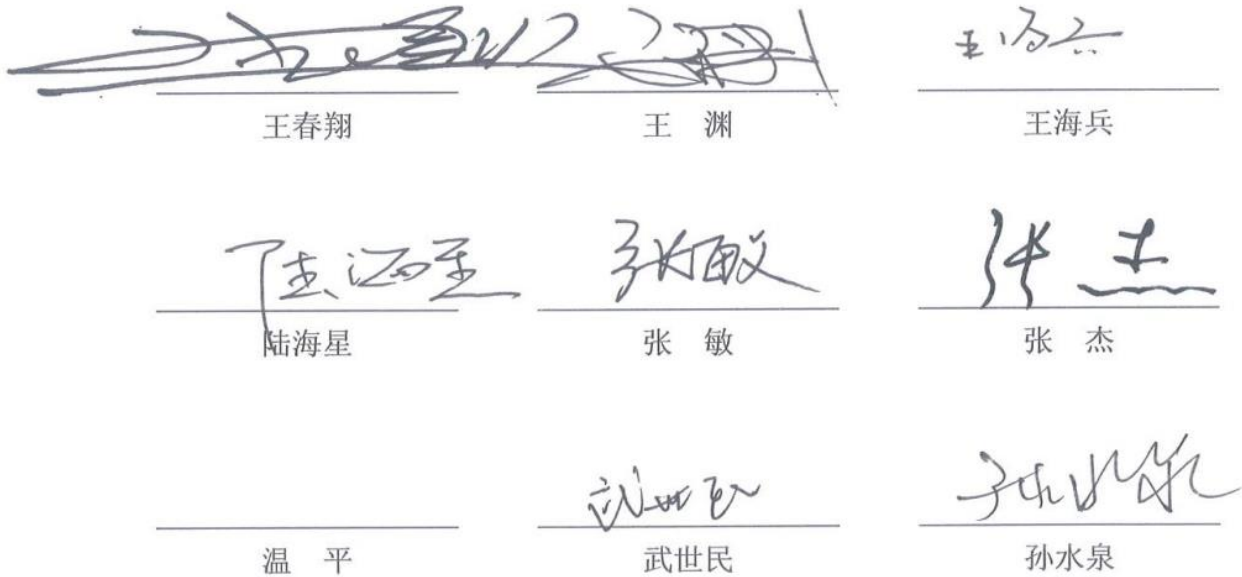 王春翔 王渊 王海兵
王春翔 王 渊 王海兵
陆海星 张敏 张杰
陆海星 张 敏 张 杰
武世民 孙水泉
温 平 武世民 孙水泉